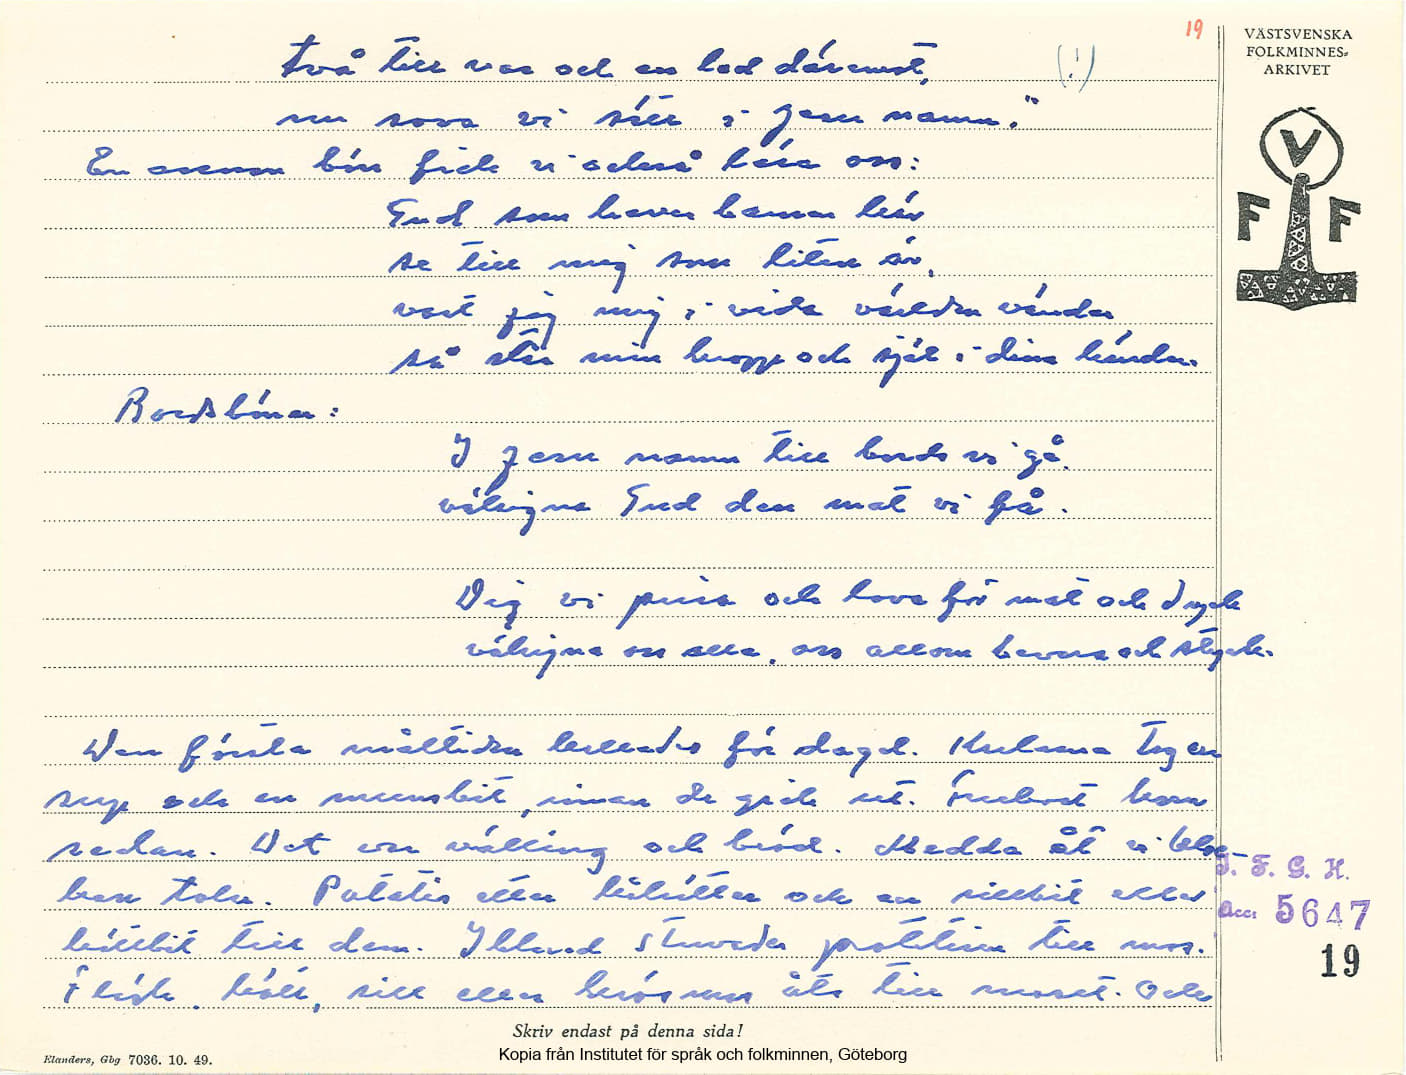 19
VÄSTSVENSKA
FOLKMINNES=
ARKIVET
V
F F
två till var och en led däremot, (!)
nu sova vi sött i Jesu namn."
En annan bön fick vi också lära oss:
Gud som haver barnen kär
se till mig som liten är,
vart jag mig i vida världen vänder
så står min kropp och själ i dina händer.
Bordsböner:
I Jesu namn till bords vi gå.
välsigna Gud den mat vi få.
Dig vi prisa och lova för mat och dryck
välsigna oss alla, oss allom bevara och styrk.
Den första måltiden kallades för dagel. Karlarna tog en
sup och en munsbit, innan de gick ut. Frukost kom
sedan. Det var välling och bröd. Medda åt vi klockan
tolv. Potatis eller kålrötter och en sillbit eller
köttbit till dem. Ibland stuvades potatisen till mos.
Fläsk, kött, sill eller åts till moset. Och
T. F. G. H.
Acc: 5647
19
Skriv endast på denna sida!
Elanders, Gbg 7036. 10. 49.
Kopia från Institutet för språk och folkminnen, Göteborg